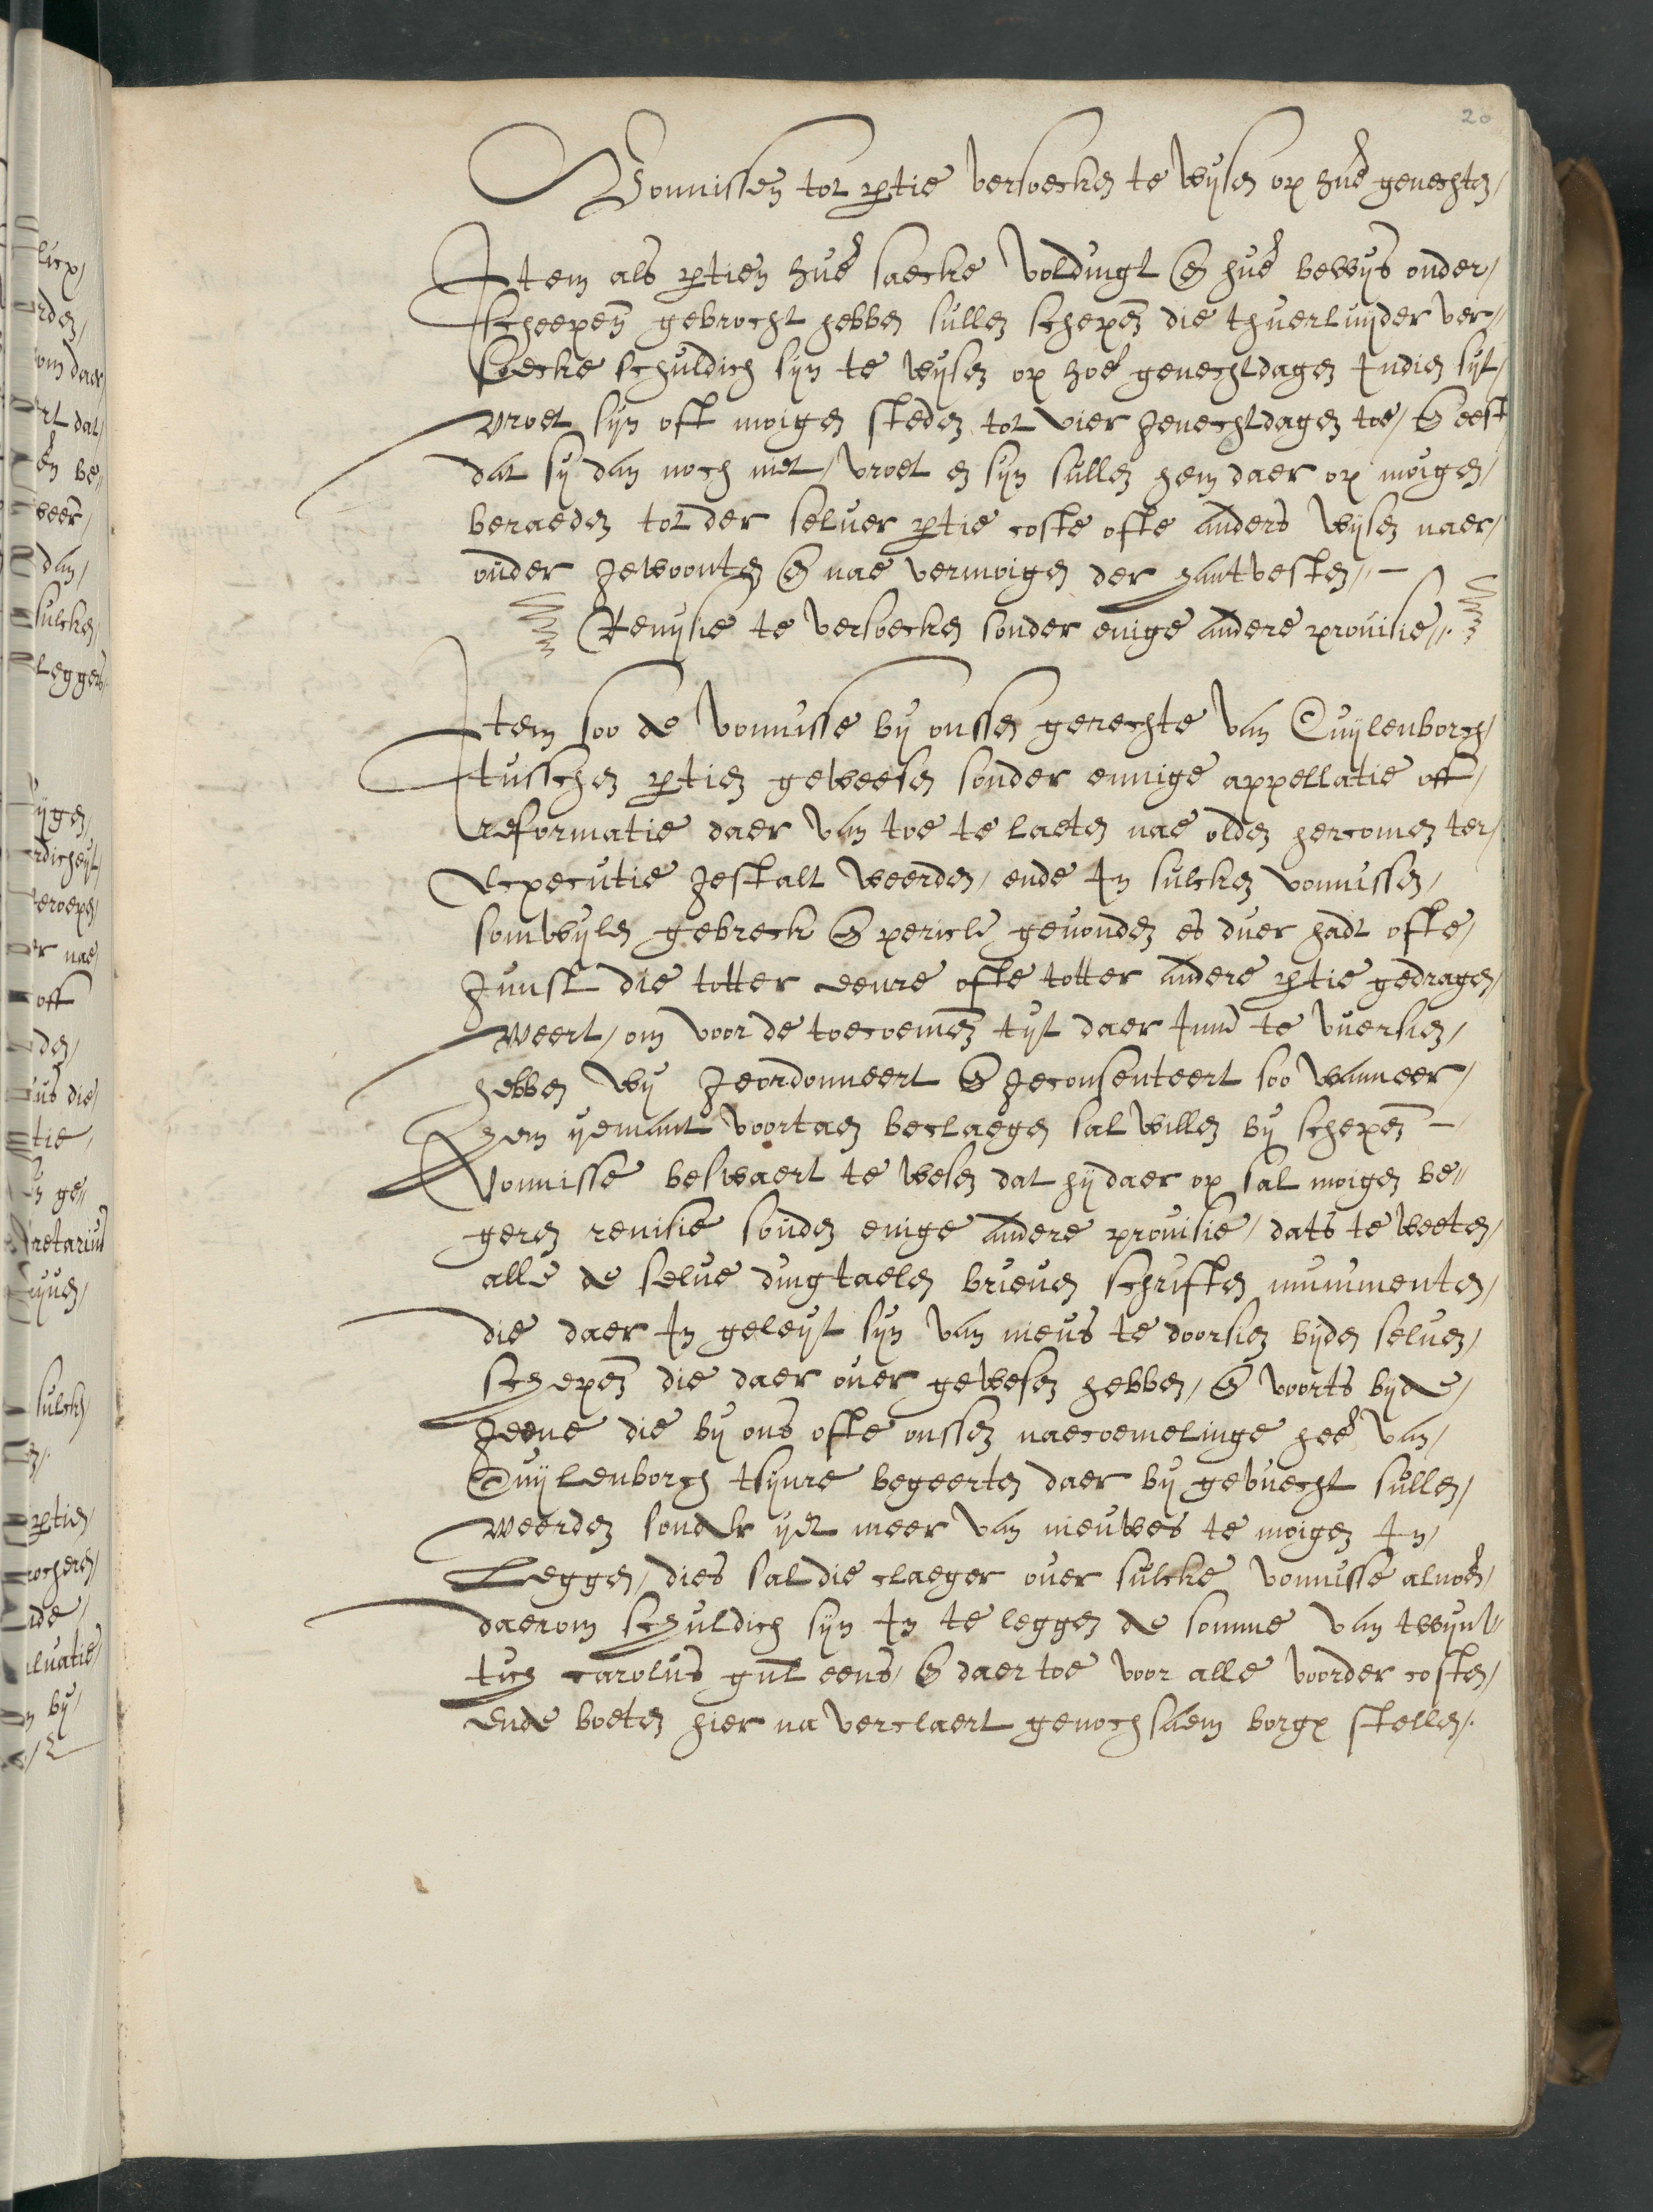 20
Vonnissen tot p̲tie versoecken te wijsen op hue^r^ genechten/
Item als p̲tien hue^r^ saecke voldingt en̄ hue^r^ bewijs onder/
scheepen̄ gebrocht hebben sullen schepen̄ die thuerluyder ver//
soecke schuldich sijn te wijsen op hoe^r^ genechtdagen Indien sijt/
vroet sijn oft moigen steden tot vier genechtdagen toe/ en̄ eest
dat sij dan noch niet/ vroet en sijn sullen hem daer op moigen/
beraeden tot der seluer p̲tie coste ofte anders wijsen naer/
ouder gewoonten en̄ nae vermoigen der hantvesten// -
Reuijsie te versoecken sonder enige andere prouisie//.
Item soo de vonnisse bij onssen gerechte van Cuijlenborch/
tusschen p̲tien geweesen sonder eenige appellatie off/
reformatie daer van toe te laeten nae olden hercomen ter/
Executie gestalt weerden/ ende In sulcken vonnissen/
somwijlen gebreck en̄ pericle geuonden es duer hadt ofte/
gunst die totter eenre ofte totter andere p̲tie gedragen/
weert/ om voor de toecoemen̄ tijt daer Inne te vuersien/
hebben wij geordonneert en̄ geconsenteert soo wanneer/
hem yemant voortaen beclaegen sal willen bij schepen̄ -
vonnisse beswaert te wesen dat hij daer op sal moigen be//
geren reuisie sonder enige andere prouisie/ dats te weeten/
alle de selue dingtaelen brieuen schriften munimenten/
die daer In geleijt sijn van nieus te doorsien bijden seluen/
schepen̄ die daer ouer gewesen hebben/ en̄ voorts bijde/
geene die bij ons ofte onssen naecoemelinge hee^r^ van/
Cuijlenborch tsijnre begeerten daer bij geuuecht sullen/
weerden sonder ijet meer van nieuwes te moigen In/
Leggen/ dies sal die claeger ouer sulcke vonnisse aluoer̄/
daerom schuldich sijn In te leggen de somme van twijn//
tich carolus gul̄ eens/ en̄ daer toe voor alle voorder costen/
ende boeten hier na verclaert genochsaem borge stellen/.